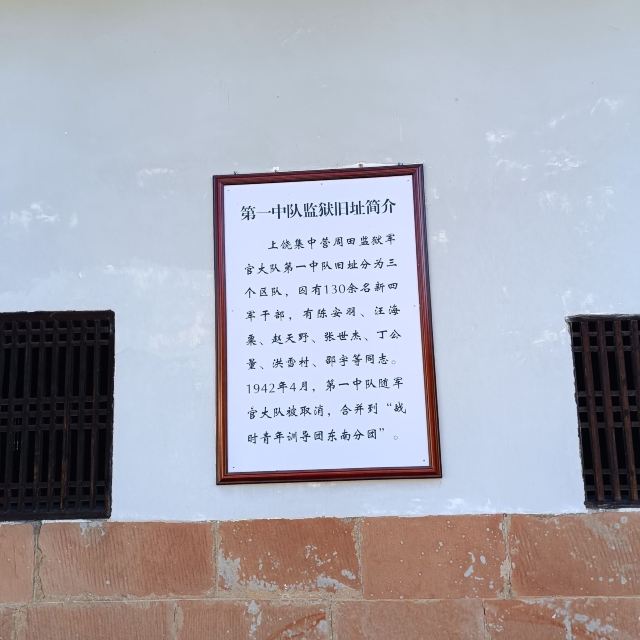 第一中队监狱旧址简介
上饶集中营周田监狱军
官大队第一中队旧址分为三
个区队，囚有130余名新四
军干部，有陈安羽、汪海
粟、赵天野、张世杰、丁公
量、洪雪村、邵宇等同志。
1942年4月，第一中队随军
官大队被取消，合并到“战
时青年训导团东南分团”。